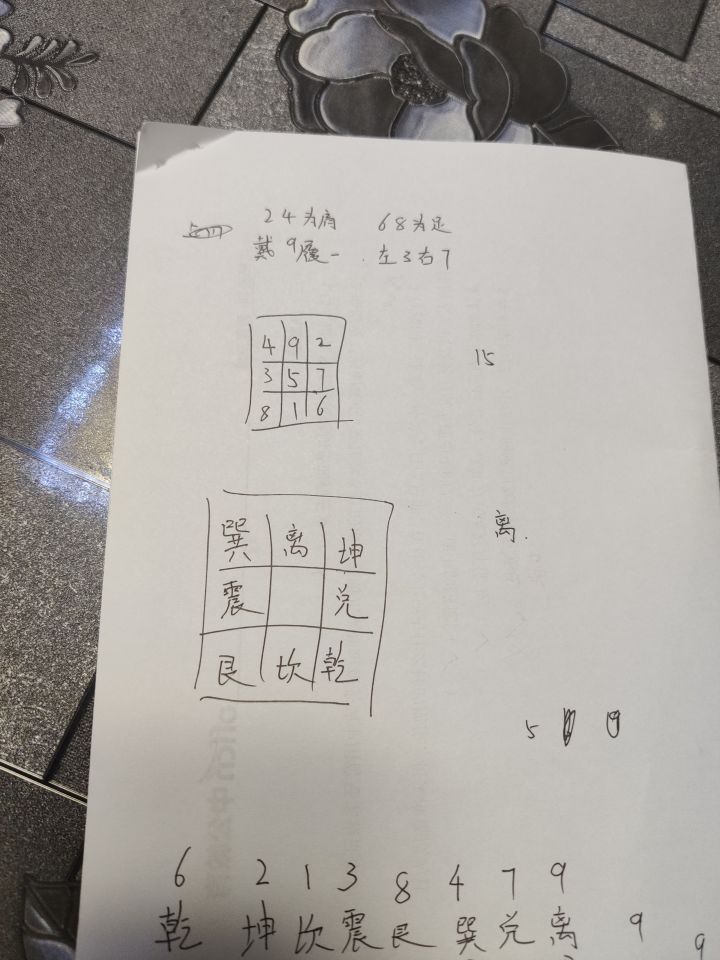 24为肩 68为足
戴9履一 . 左3右7
4 9 2
3 5 7
8 1 6
15
巽 离 坤
震 兑
艮 坎 乾
离.
5
6 2 1 3 8 4 7 9
乾 坤 坎 震 艮 巽 兑 离 9 9